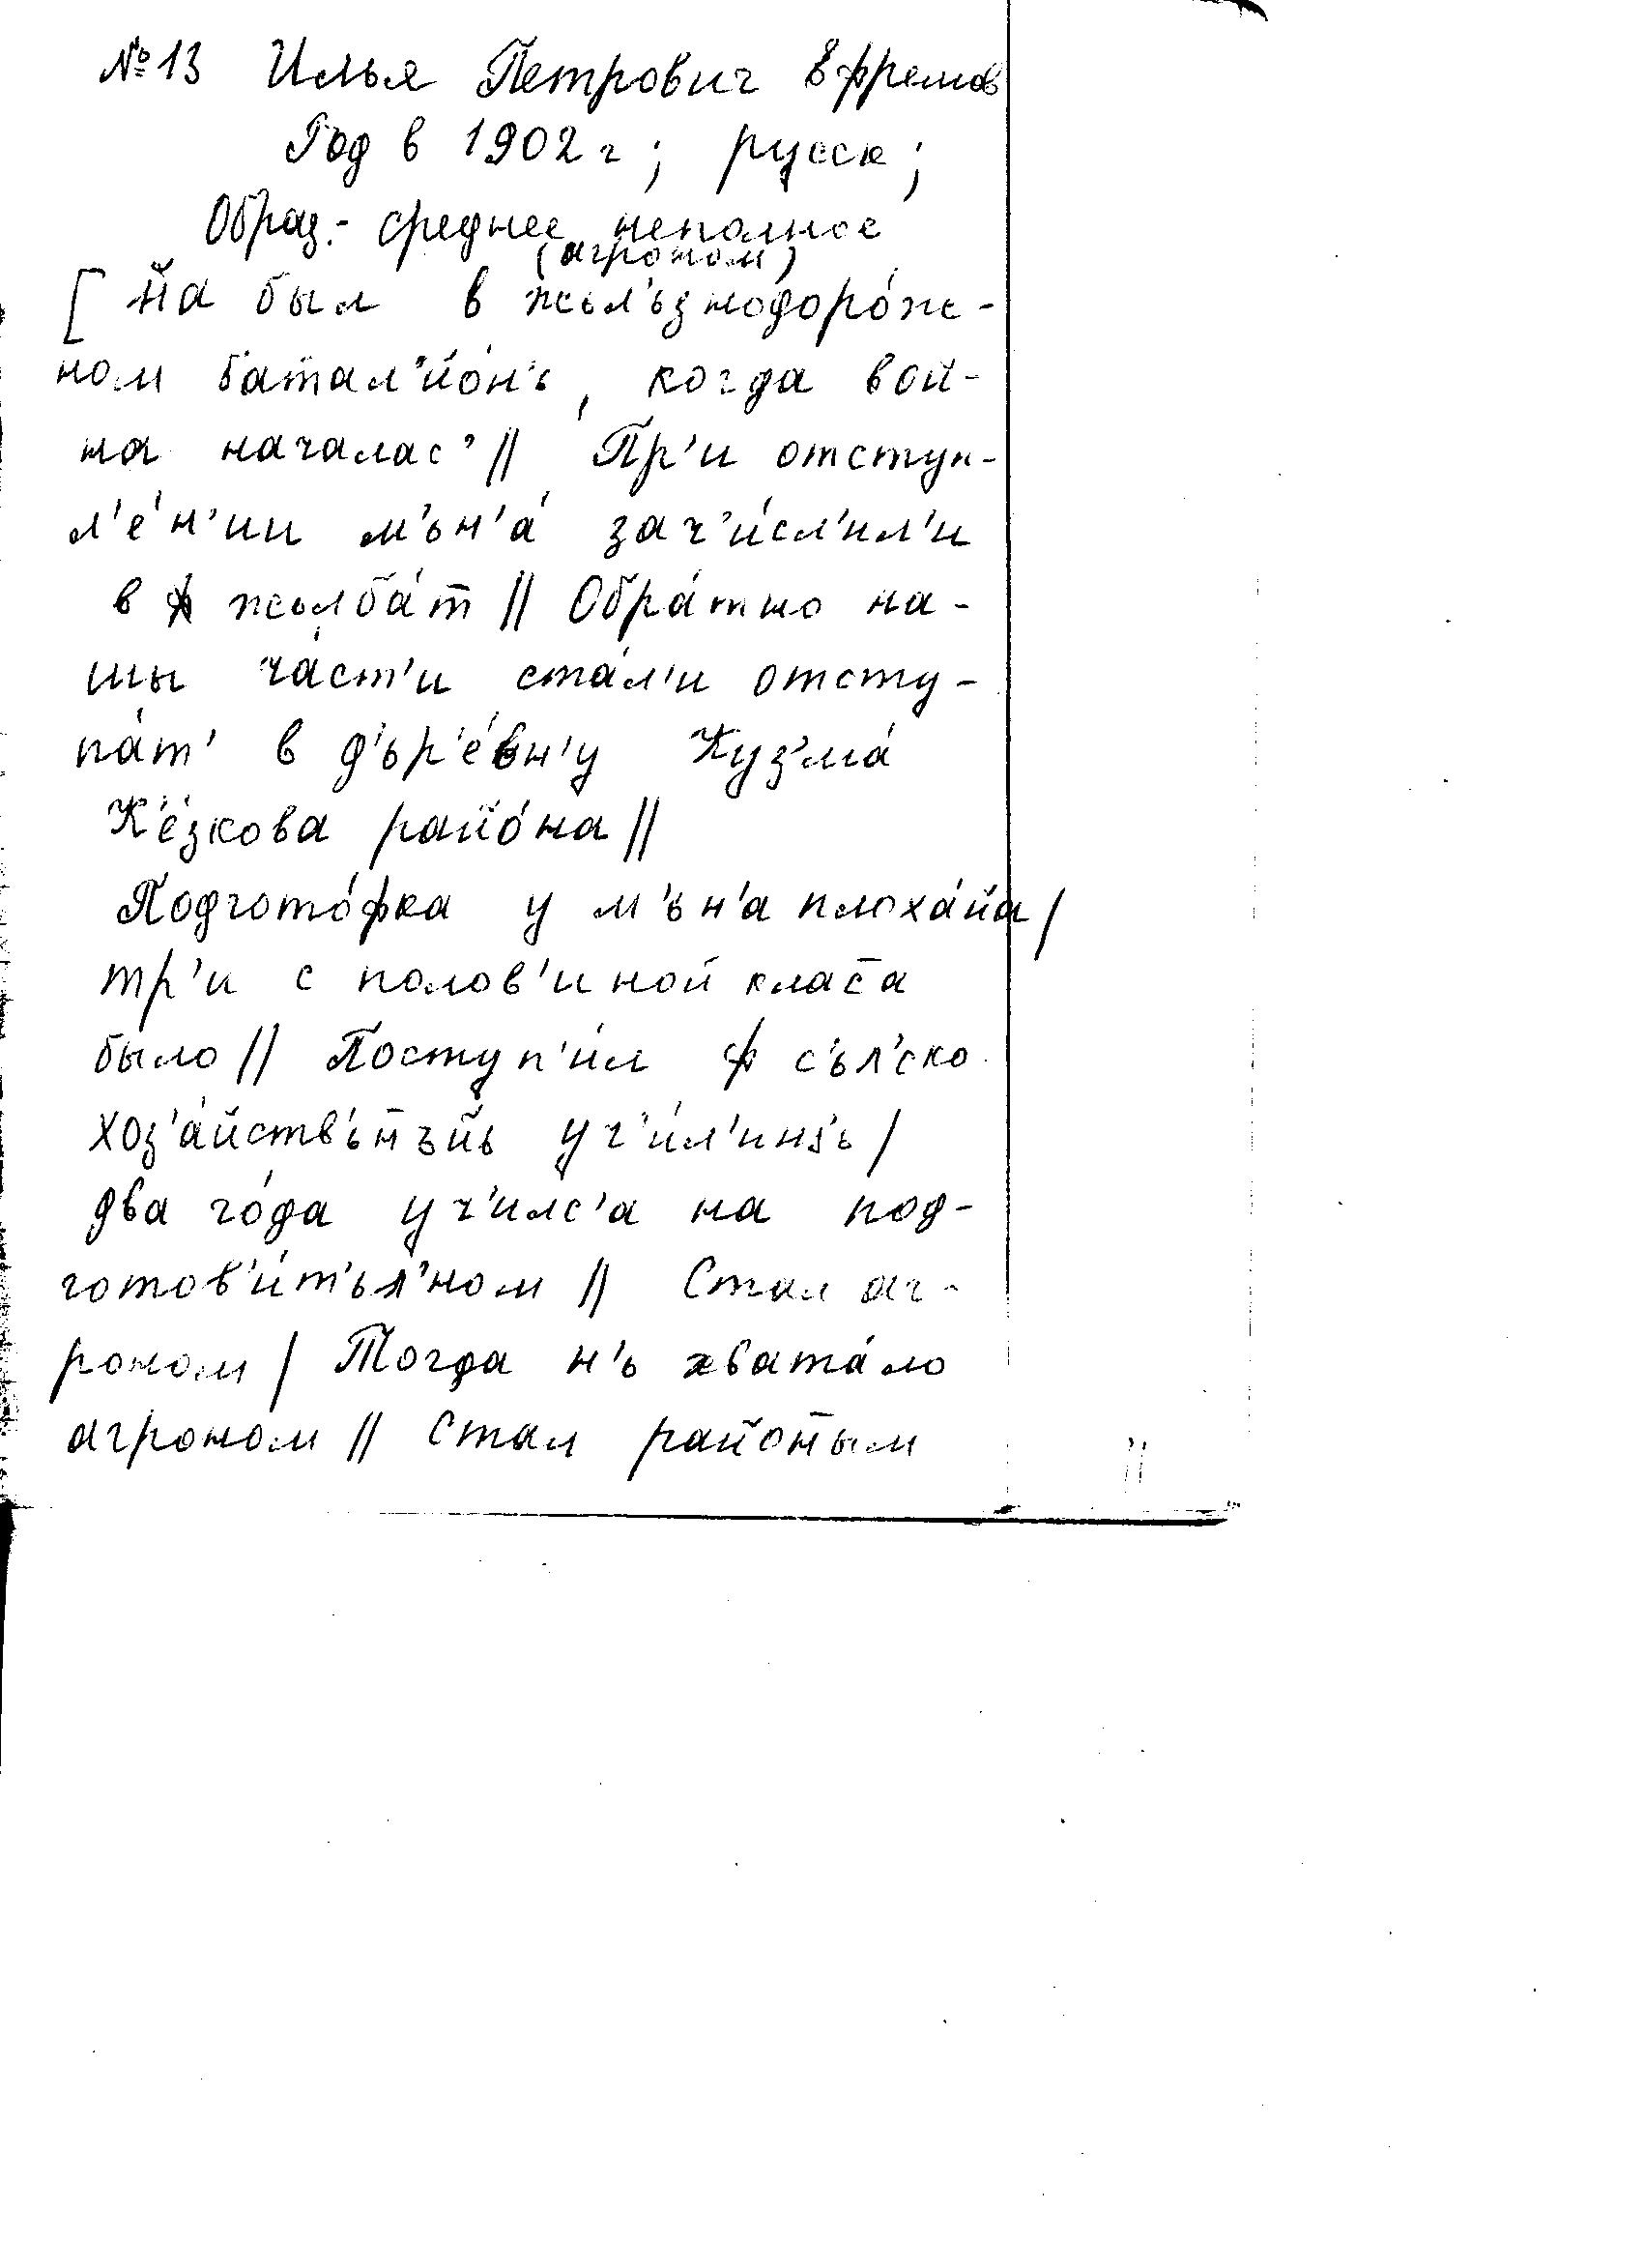 №13 Илья Петрович Ефремов
Род в 1902 г; русск;
Образ.- среднее неполное
(агроном)
[ йа был в жъл'ьзнодоро́ж-
ном батал'йо́н'ь, когда вой-
на началас' // Пр'и отступ-
л'е́н'ии м'ьн'а́ зач'и́сл'ил'и
в жълба́т // Обра́тно на-
шы ча́ст'и ста́л'и отсту-
па́т' в д'ьр'е́вн'у Куз'ма́
К'е́зкова райо́на //
Подгото́фка у м'ьн'а плоха́йа /
тр'и с полов'иной клас̄а
было // Поступ'и́л ф с'ьл'ско
хоз'а́йств'ьн̄ъйь уч'и́л'ищ'ь /
два го́да уч'илс'а на под-
готов'и́т'ьл'ном // Стал аг-
роном / Тогда н'ь хвата́ло
агроном // Стал район̄ым